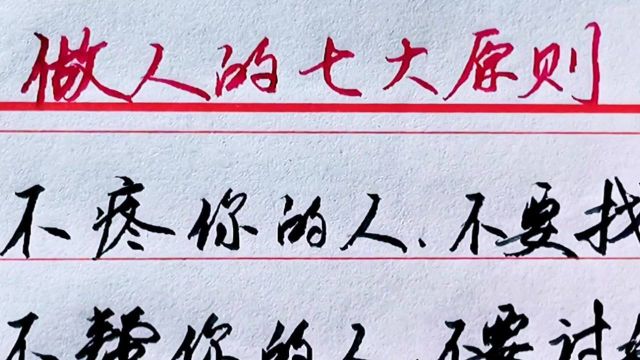 做人的七大原则
不疼你的人、不要找
不帮你的人、不要讨